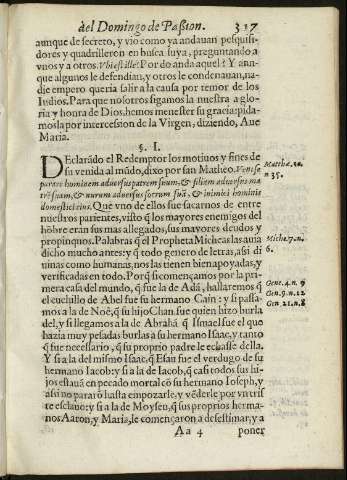 del Domingo de Paßion. 317
aunque de secreto, y vio como ya andauan pesquisi-
dores y quadrilleren en busca suya, preguntando a
vnos y a otros. Vbi est ille? Por do anda aquel? Y aun-
que algunos le defendian, y otros le condenauan, na-
die empero queria salir a la causa por temor de los
Iudios. Para que nosotros sigamos la nuestra a glo-
ria y honra de Dios, hemos menester su gracia: pida-
mosla por intercession de la Virgen, diziendo, Aue
Maria.
§. I.
DEclarãdo el Redemptor los motiuos y fines de
su venida al mũdo, dixo por san Matheo. Veni se
parare hominem aduersus patrem suum, & filiam aduersus ma
trẽ suam, & nurum aduersus socrum suã, & inimici hominis
domestici eius. Que vno de ellos fue sacarnos de entre
nuestros parientes, visto q̃ los mayores enemigos del
hõbre eran sus mas allegados, sus mayores deudos y
propinquos. Palabras q̃ el Propheta Micheas las auia
dicho mucho antes: y q̃ todo genero de letras, assi di
uinas como humanas, nos las tienen bien apoyadas, y
verificadas en todo. Porq̃ si comẽçamos por la prime
ra casa del mundo, q̃ fue la de Adã, hallaremos q̃
el cuchillo de Abel fue su hermano Cain: y si passa-
mos a la de Noë, q̃ su hijo Chan fue quien hizo burla
del, y si llegamos a la de Abrahã q̃ Ismael fue el que
hazia muy pesadas burlas a su hermano Isaac, y tanto
q̃ fue necessario, q̃ su proprio padre le echasse de alla.
Y si a la del mismo Isaac, q̃ Esau fue el verdugo de su
hermano Iacob: y si a la de Iacob, q̃ casi todos sus hi
jos estauã en pecado mortal cõ su hermano Ioseph, y
assi no pararõ hasta empozarle, y vẽderle por vn tris
te esclauo: y si a la de Moysen, q̃ sus proprios herma-
nos Aaron, y Maria, le començaron a desestimar, y a
Aa 4 poner
Matthæ. 10.
n 35.
Miche. 7. n.
6.
Gene. 4. n. 9
Gen. 9. n. 22
Gen 21. n. 8